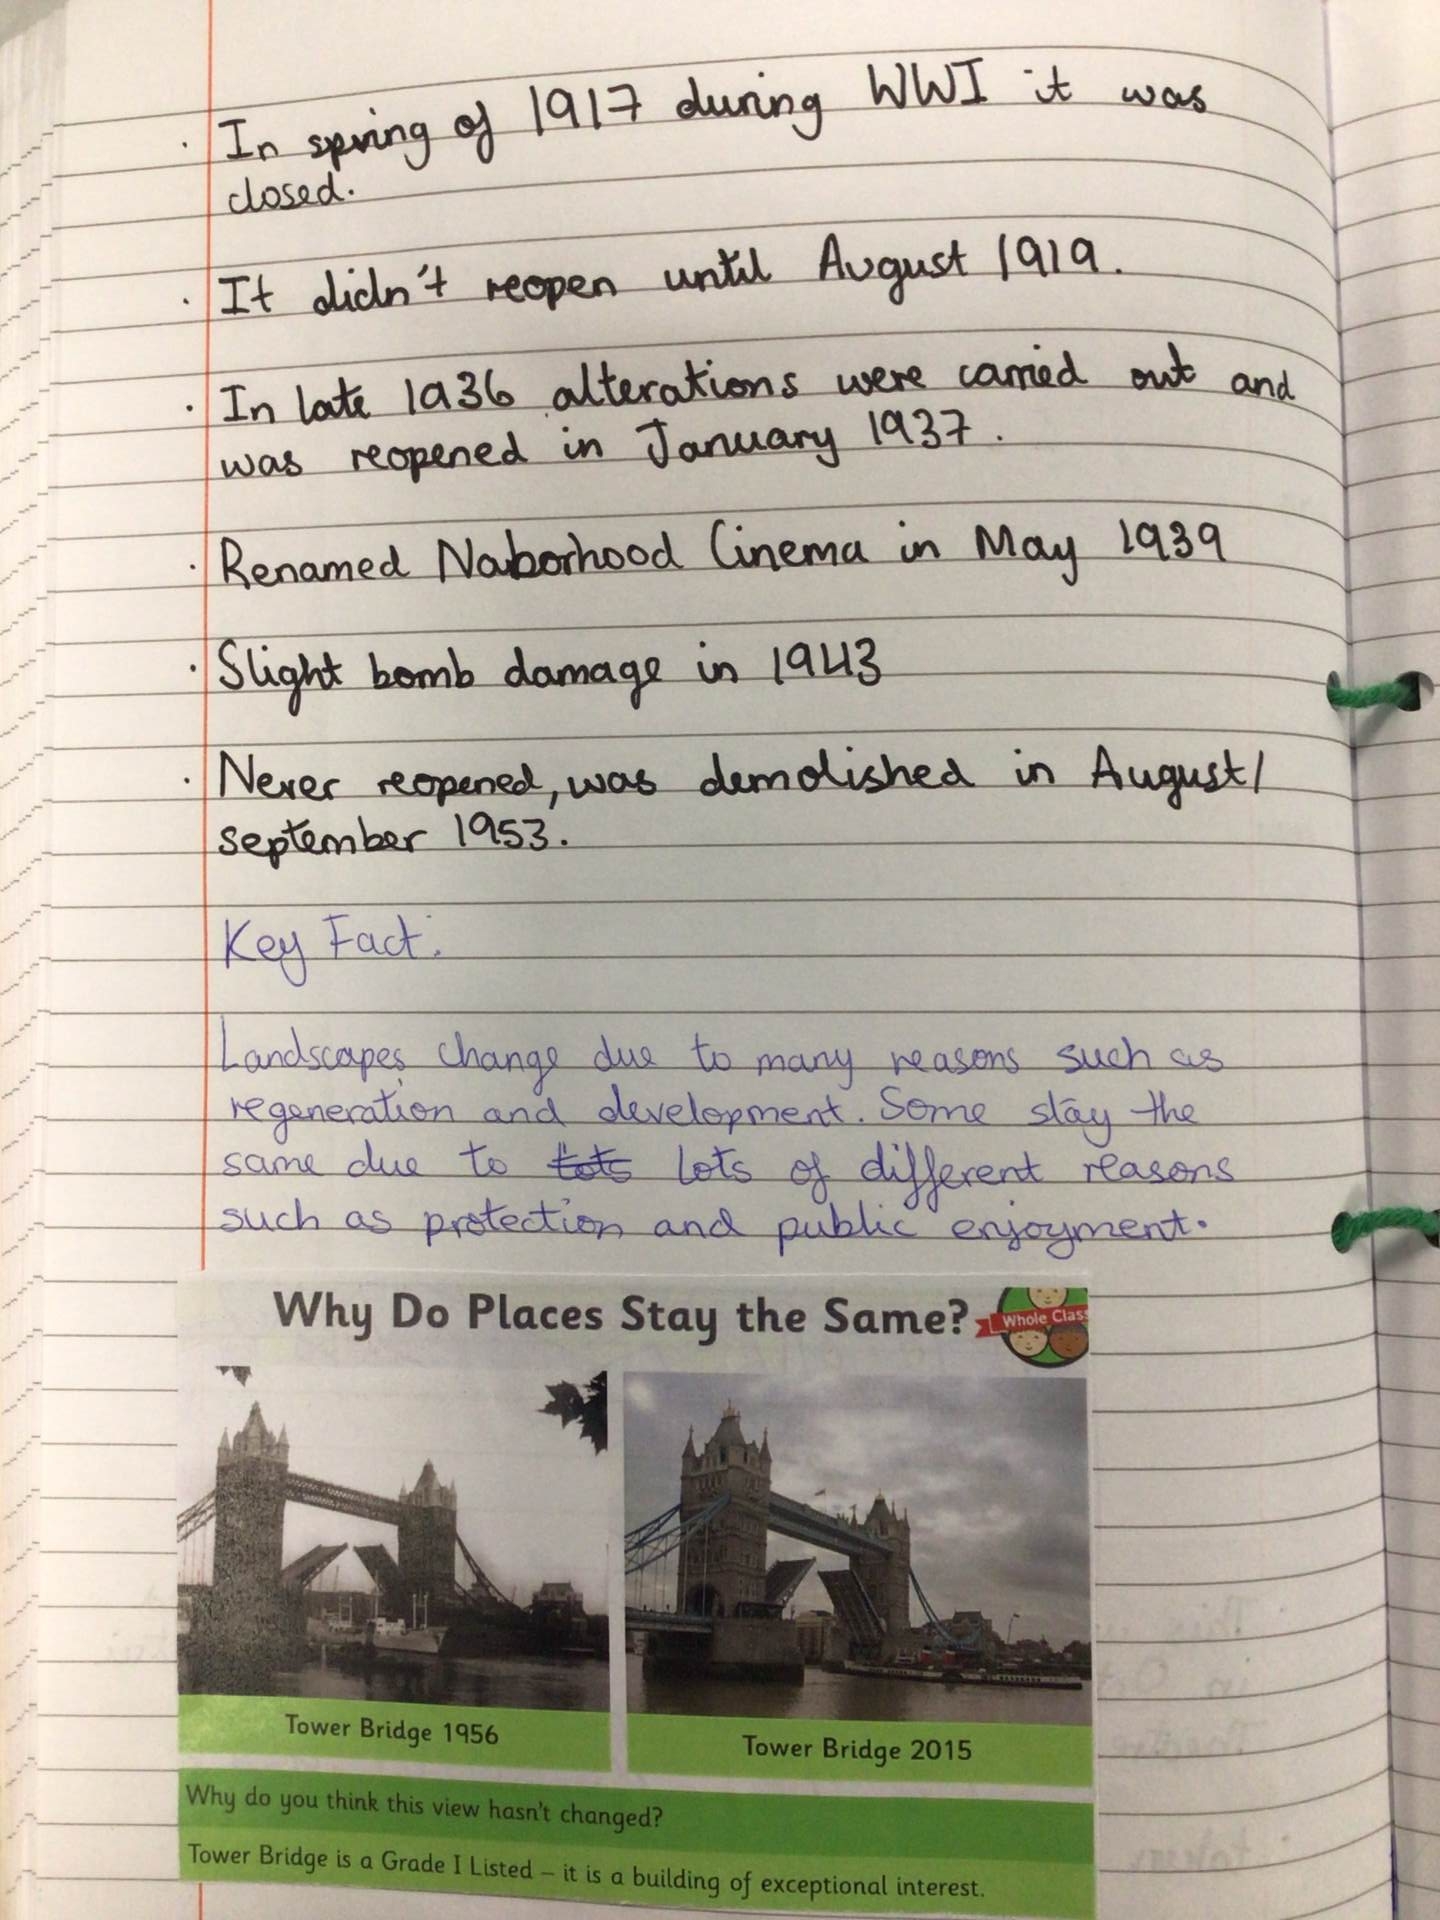 · In spring of 1917 during WWI it was
closed.
· It didn't reopen until August 1919.
· In late 1936 alterations were carried out and
was reopened in January 1937.
· Renamed Naborhood Cinema in May 1939
· Slight bomb damage in 1943
· Never reopened, was demolished in August/
september 1953.
Key Fact:
Landscapes change due to many reasons such as
regeneration and development. Some stay the
same due to lots of different reasons
such as protection and public enjoyment.
Why Do Places Stay the Same?
Whole Class
Tower Bridge 1956
Tower Bridge 2015
Why do you think this view hasn't changed?
Tower Bridge is a Grade I Listed – it is a building of exceptional interest.